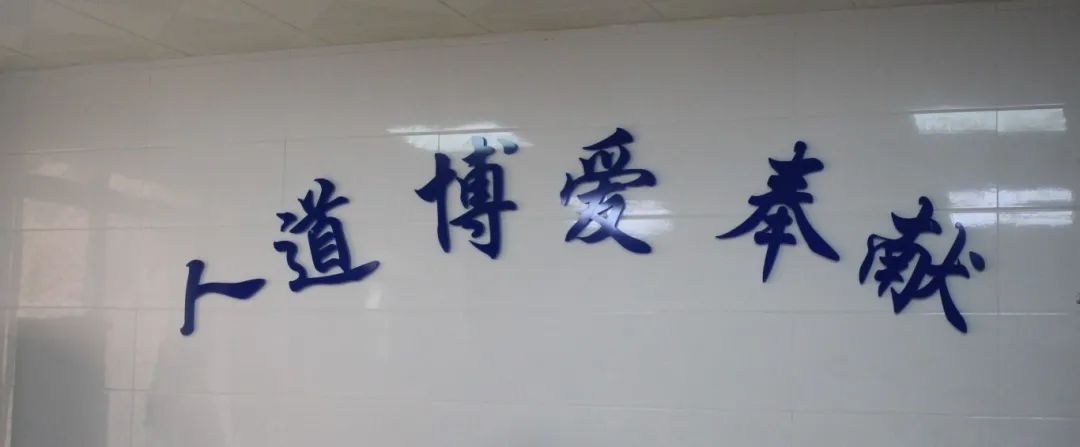 人道博爱奉献